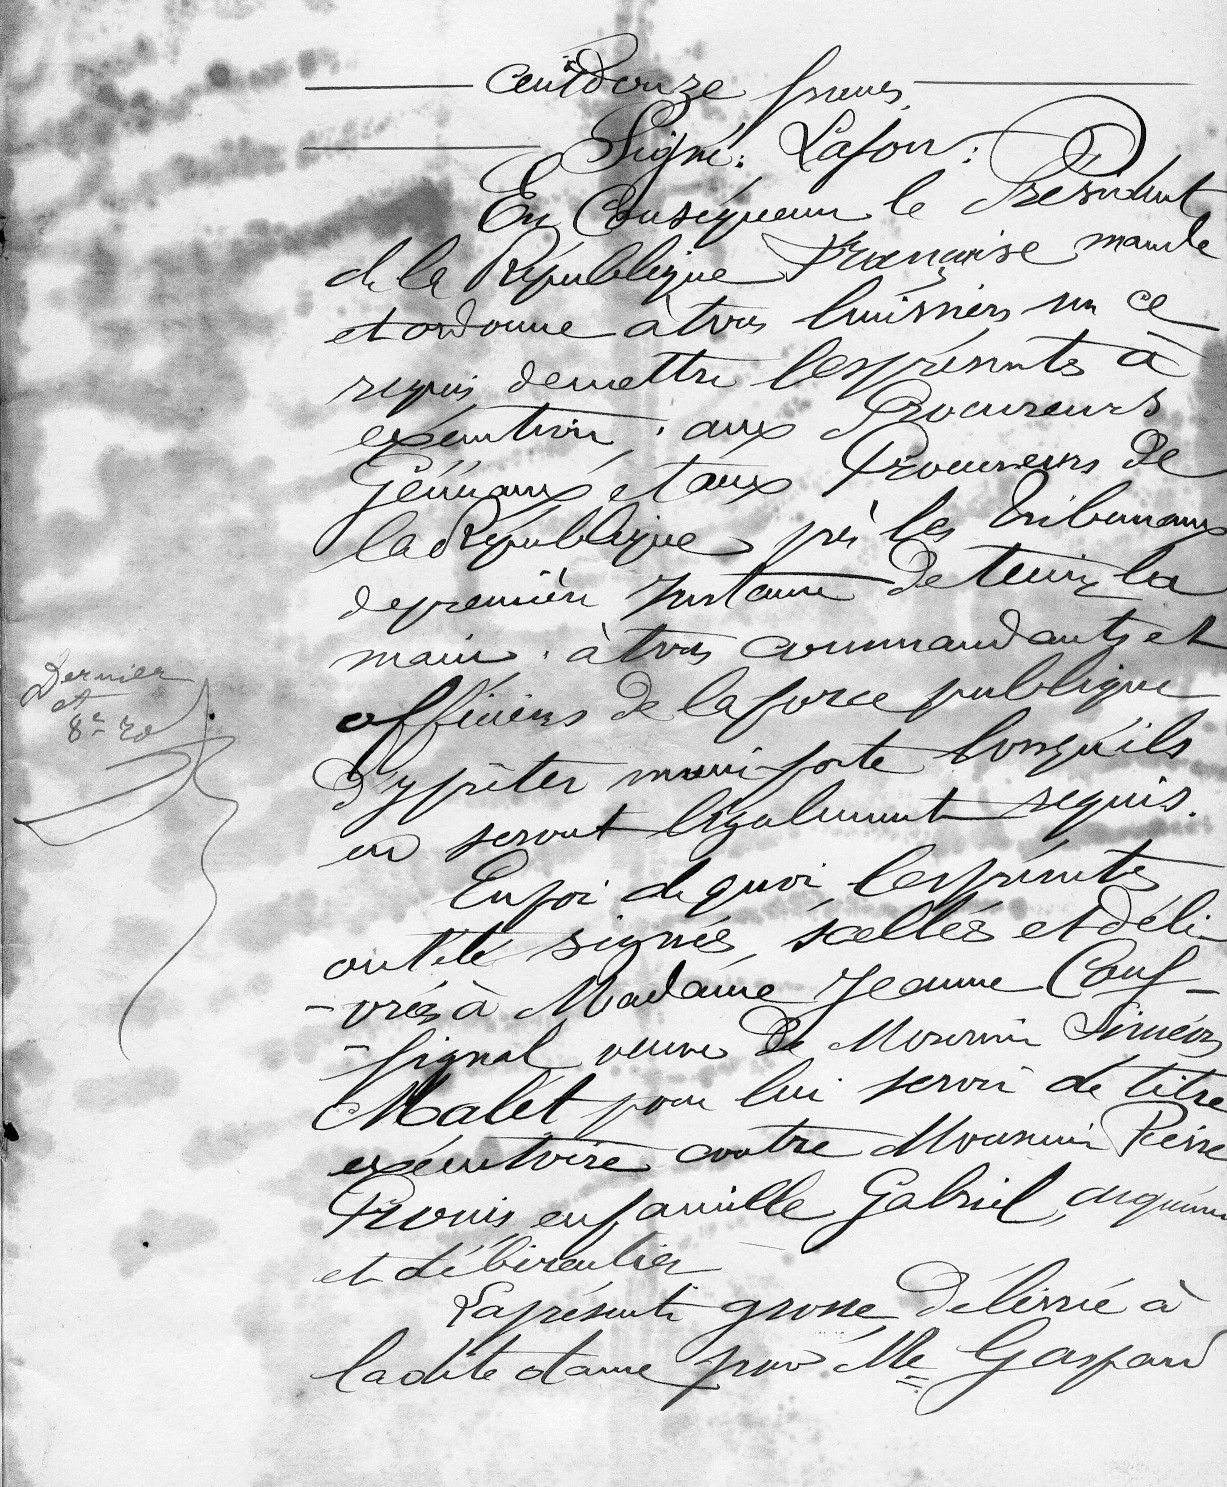 cent douze francs
Signé: Lafon:
En Conséquence le Président
de la République Française mande
et ordonne à tous huissiers sur ce
requis de mettre les présentes à
exécution, aux Procureurs
Généraux et aux Procureurs de
la République près les Tribunaux
de première Instance de tenir la
main, à tous commandants et
officiers de la force publique
d'y prêter main forte lorsqu'ils
en seront légalement requis.
En foi de quoi les présentes
ont été signées, scellées et déli-
-vrées à Madame Jeanne Couf-
-fignal veuve de Monsieur Siméon
Malet pour lui servir de titre
exécutoire contre Monsieur Pierre
Prouis en famille Gabriel, acquéreur
et débirentier
La présente grosse délivrée à
la dite dame par Me Gaspard
Dernier
et
8e Ro